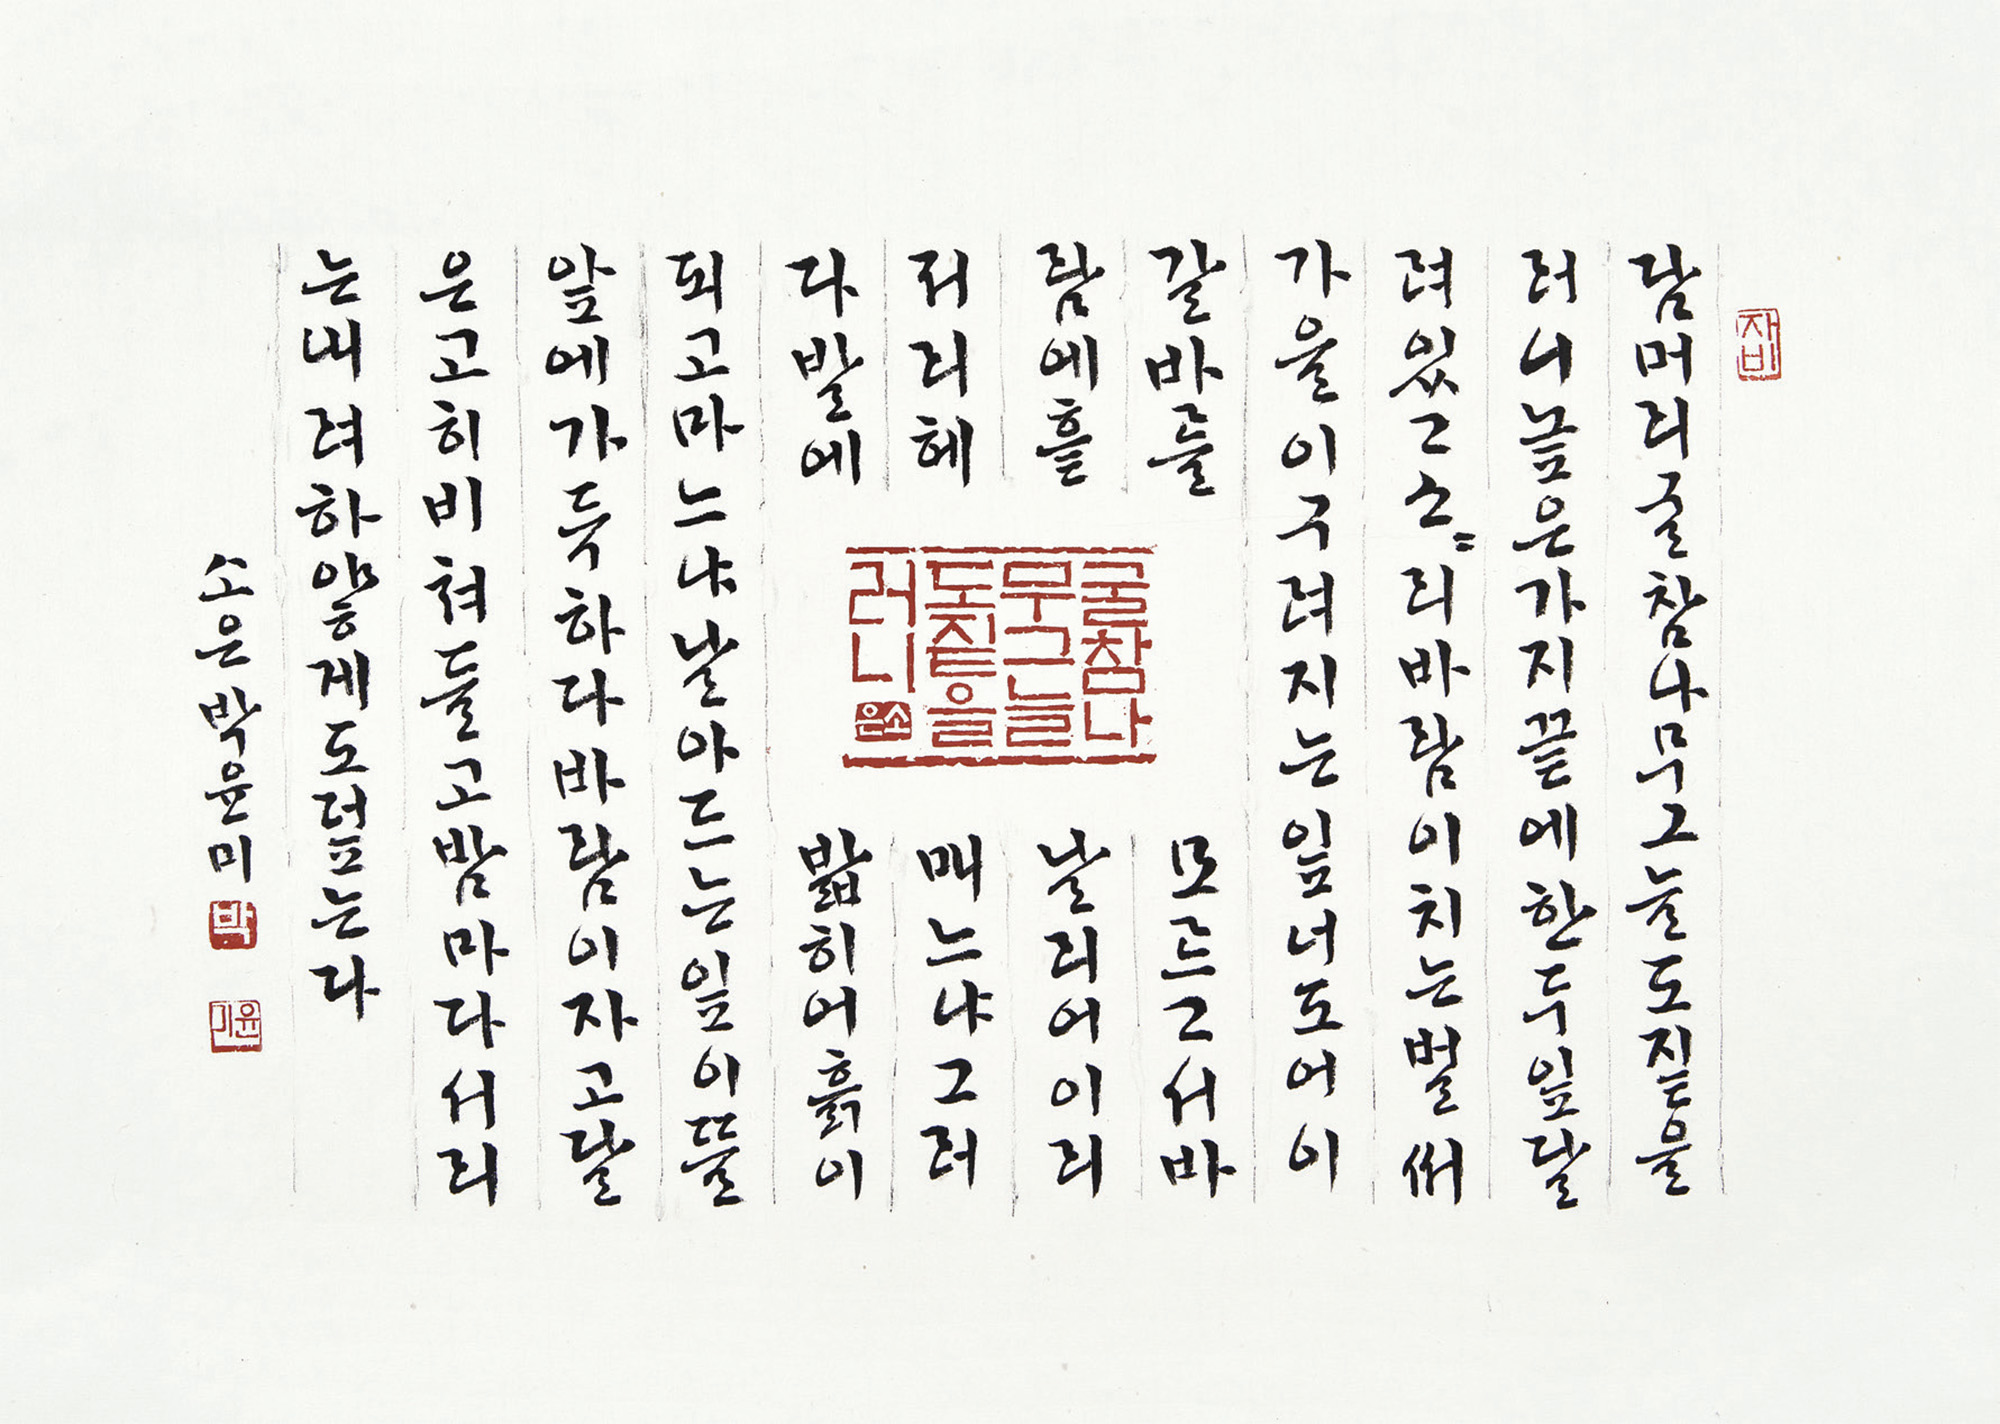 자비
담머리굴참나무그늘도짙을
러니높은가지끝에한두잎달
려있고소〃리바람이치는벌써
가을이구려지는잎너도어이
갈바를모르고서바
람에흩날리어이리
저리헤매느냐그러
다발에밟히어흙이
되고마느냐날아드는잎이뜰
앞에가득하다바람이자고달
은고히비쳐들고밤마다서리
는내려하얗게도덮는다
굴참나
무그늘
도짙을
러니
소은
소은박윤미
박
윤미